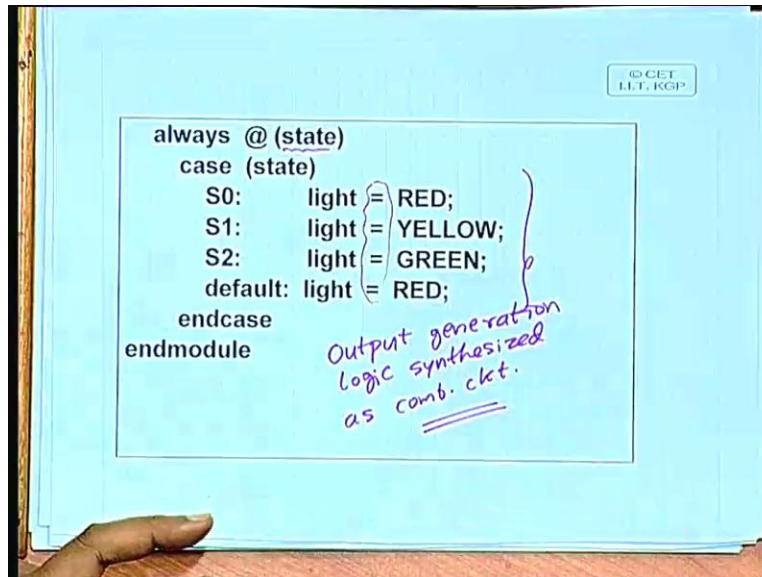 © CET
I.I.T. KGP
always @ (state)
case (state)
S0: light = RED;
S1: light = YELLOW;
S2: light = GREEN;
default: light = RED;
endcase
endmodule
Output generation
logic synthesized
as comb. ckt.